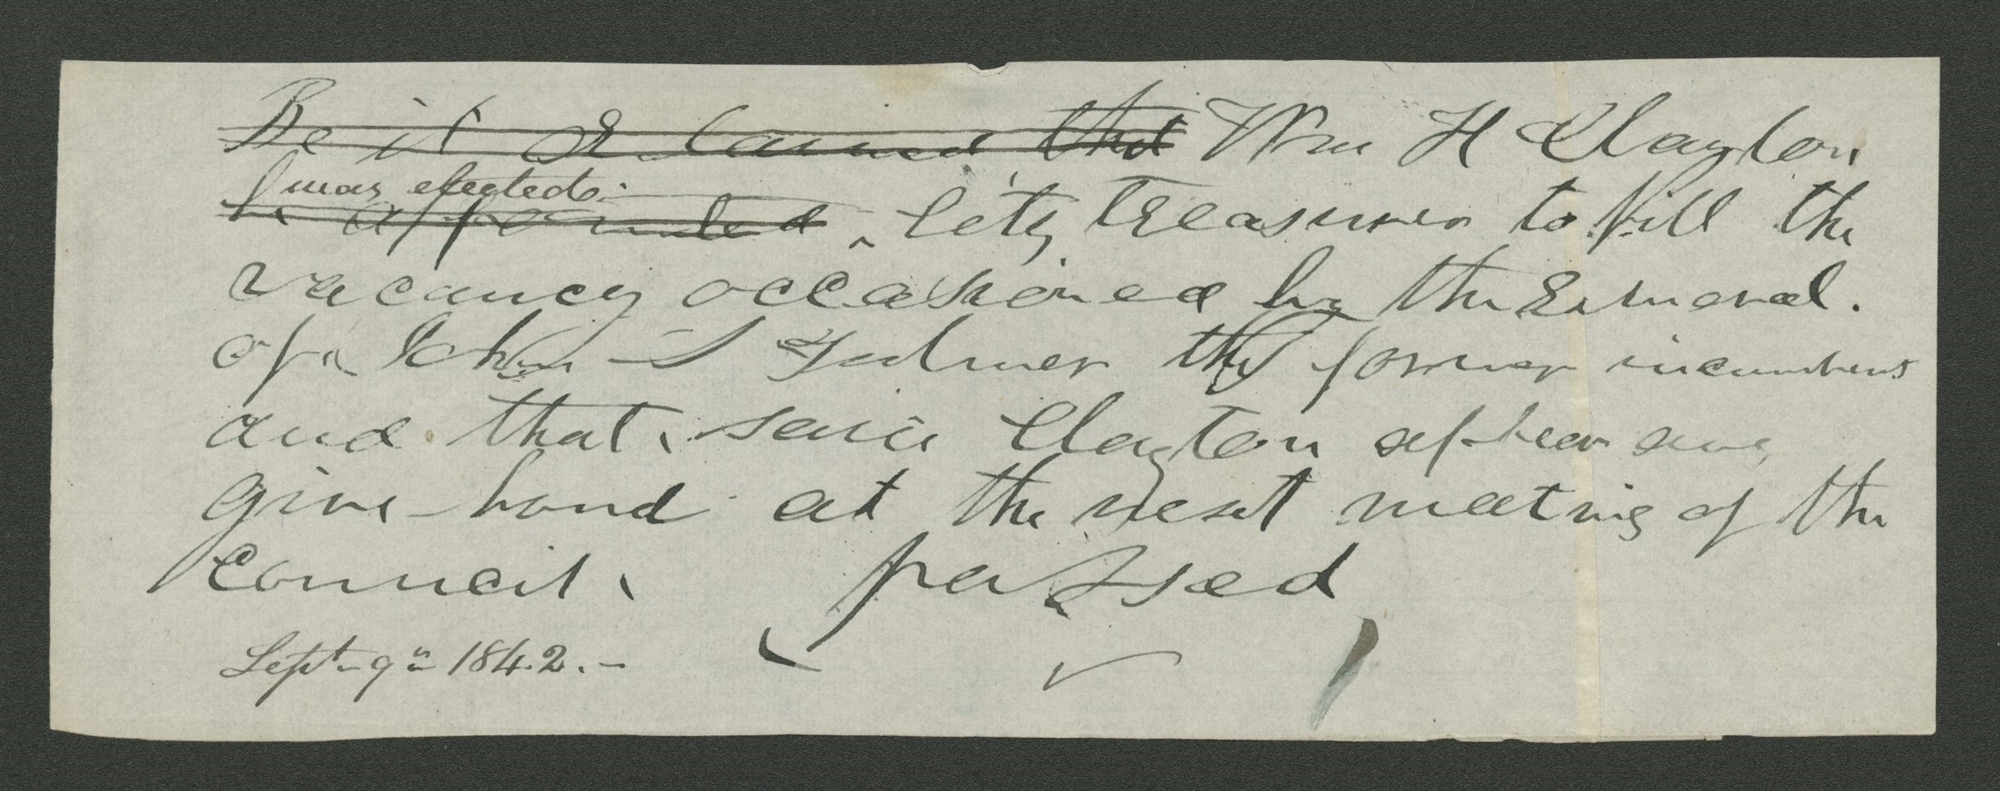 Be it Ordained that Wm H Clayton
was elected
be appointed City Treasurer to fill the
vacancy occasioned by the removal.
of John the former incumbent
and that said Clayton appear and
give bond at the next meeting of the
Council. passed
Sept 9th 1842.-